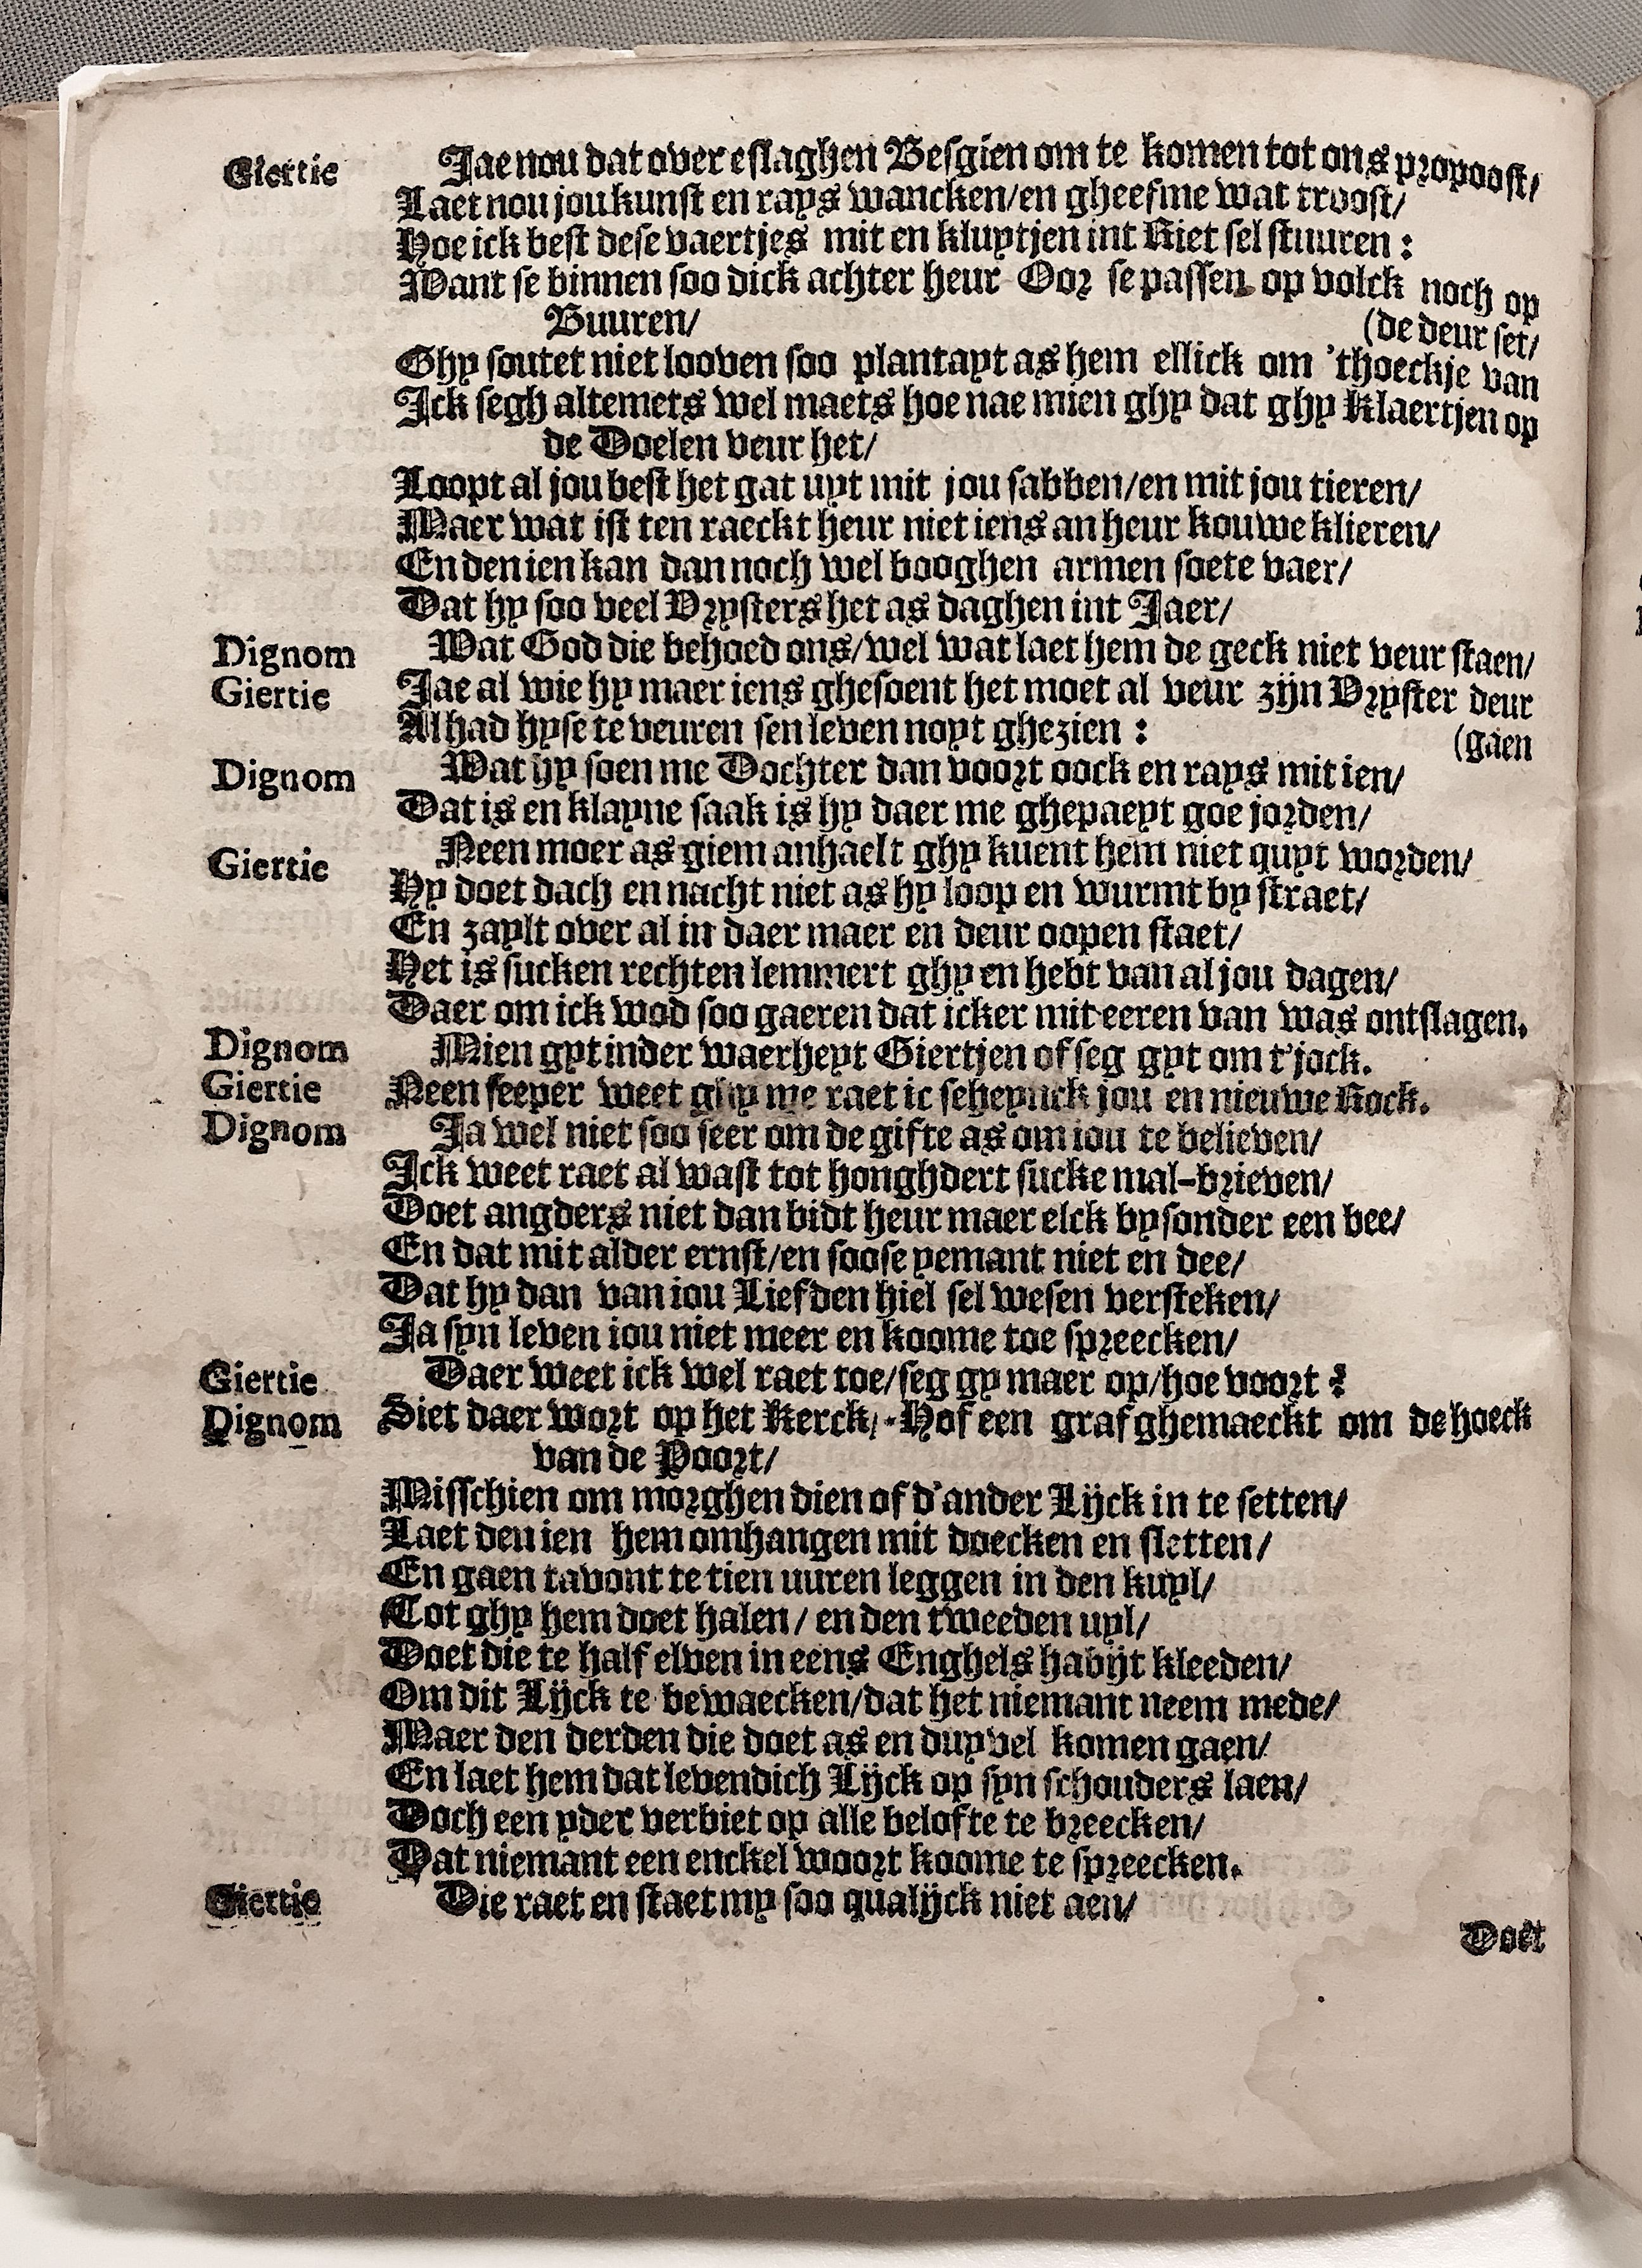 Giertie Jae nou dat over eslaghen Besgien om te komen tot ons propoost/
Laet nou jou kunst en rays wancken/en gheefme wat troost/
Hoe ick best dese vaertjes mit en kluytjen int Riet sel stuuren :
Want se binnen soo dick achter heur Oor se passen op volck noch op
Buuren/ (de deur set/
Ghy soutet niet looven soo plantayt as hem ellick om 'thoeckje van
Ick segh altemets wel maets hoe nae mien ghy dat ghy Klaertjen op
de Doelen veur het/
Loopt al jou best het gat uyt mit jou sabben/en mit jou tieren/
Maer wat ist ten raeckt heur niet iens an heur kouwe klieren/
En den ien kan dan noch wel booghen armen soete vaer/
Dat hy soo veel Vrysters het as daghen int Jaer/
Dignom Wat God die behoed ons/wel wat laet hem de geck niet veur staen/
Giertie Jae al wie hy maer iens ghesoent het moet al veur zijn Vryster deur
Al had hyse te veuren sen leven noyt ghezien : (gaen
Dignom Wat hy soen me Dochter dan voort oock en rays mit ien/
Dat is en klayne saak is hy daer me ghepaeyt goe jorden/
Giertie Neen moer as giem anhaelt ghy kuent hem niet quyt worden/
Hy doet dach en nacht niet as hy loop en wurmt by straet/
En zaylt over al in daer maer en deur oopen staet/
Het is sucken rechten lemmert ghy en hebt van al jou dagen/
Daer om ick wod soo gaeren dat icker mit eeren van was ontslagen.
Dignom Mien gyt inder waerheyt Giertjen of seg gyt om t'jock.
Giertie Neen seeper weet ghy me raet ic seheynck jou en nieuwe Rock.
Dignom Ja wel niet soo seer om de gifte as om iou te believen/
Ick weet raet al wast tot honghdert sucke mal-brieven/
Doet angders niet dan bidt heur maer elck bysonder een bee/
En dat mit alder ernst/en soose yemant niet en dee/
Dat hy dan van iou Liefden hiel sel wesen versteken/
Ja syn leven iou niet meer en koome toe spreecken/
Giertie Daer weet ick wel raet toe/seg gy maer op/hoe voort ?
Dignom Siet daer wort op het Kerck/-Hof een graf ghemaeckt om de hoeck
van de Poort/
Misschien om morghen dien of d'ander Lijck in te setten/
Laet den ien hem omhangen mit doecken en sletten/
En gaen tavont te tien uuren leggen in den kuyl/
Tot ghy hem doet halen/ en den tweeden uyl/
Doet die te half elven in eens Enghels habijt kleeden/
Om dit Lijck te bewaecken/dat het niemant neem mede/
Maer den derden die doet as en duyvel komen gaen/
En laet hem dat levendich Lijck op syn schouders laen/
Doch een yder verbiet op alle belofte te breecken/
Dat niemant een enckel woort koome te spreecken.
Giertie Die raet en staet my soo qualijck niet aen/
Doet